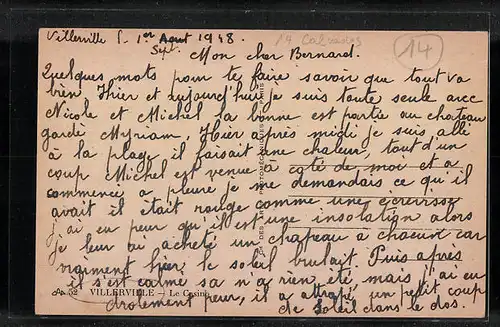 Villerville S. 1er Aout 1948.
Sept.
14 Calvados
14
Mon cher Bernard.
Quelques mots pour te faire savoir que tout va
bien Hier et aujourd'hui je suis toute seule avec
Nicole et Michel la bonne est partie au chateau
gardé Myriam. Hier après midi je suis allé
à la plage il faisait une chaleur, tout d'un
coup Michel est venue à coté de moi et a
commencé a pleuré je me demandais ce qu'il
avait il était rouge comme une écrevisse
j'ai eu peur qu'il est une insolation alors
je leur ai acheté un chapeau à chacun car
vraiment hier le soleil brulait Puis après
il s'est calmé sa n'a rien été mais j'ai eu
52 VILLERVILLE — Le Casino
drolement peur, il a attrapé un petit coup
de soleil dans le dos.